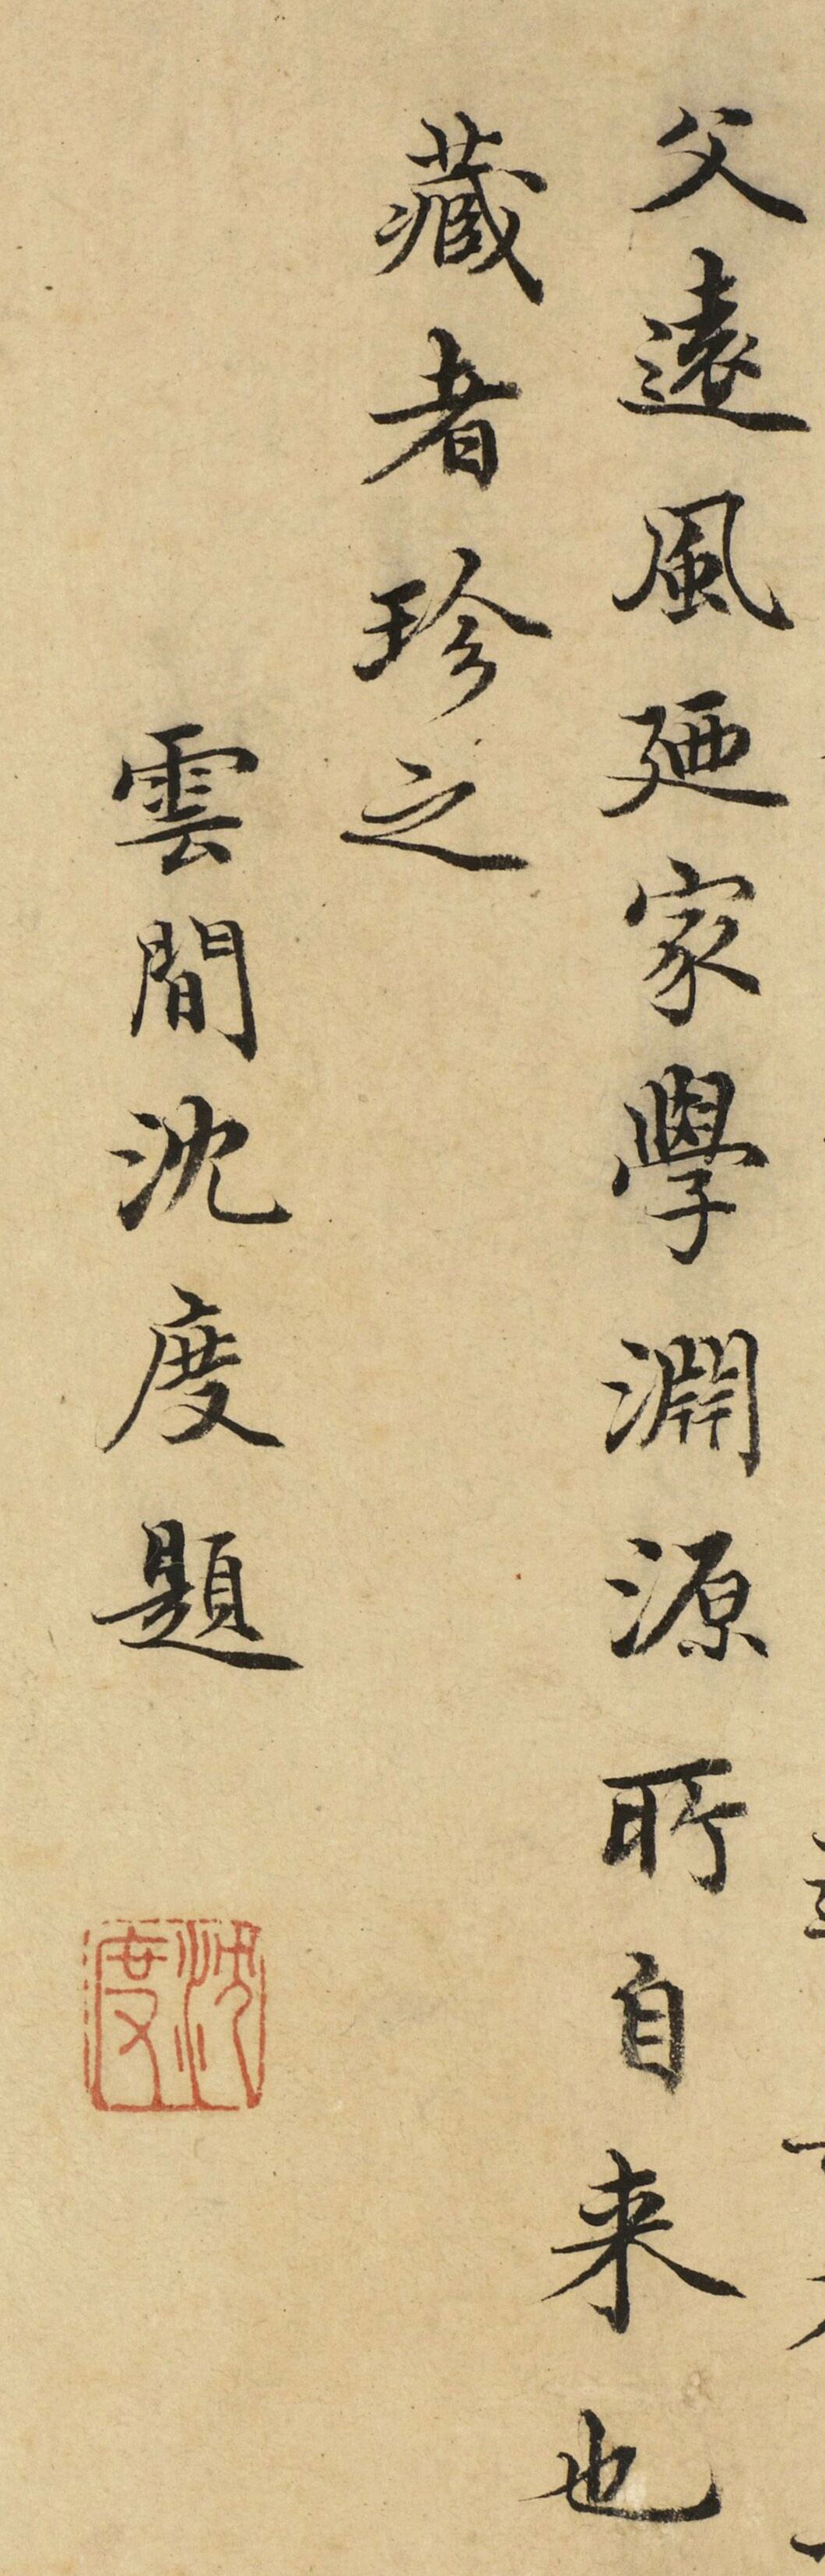 父遠風廼家學淵源所自来也
藏者珍之
雲間沈度題
沈度